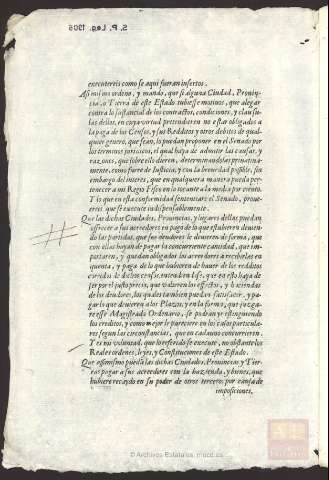 S. P. Leg. 1905
executareis como se aqui fueran insertos.
Assi mismo ordeno, y mando, que si alguna Ciudad, Provin-
cia, ò Tierra de esse Estado tubiesse motivos, que alegar
contra lo sustancial de los contractos, condiciones, y clausu-
las dellos, en cuya virtud pretendieren no estar obligados a
la paga de los Censos, y sus Redditos y otros debitos de qual-
quiere genero, que sean, lo puedan proponer en el Senado por
los terminos juridicos, el qual haya de admitir las causas, y
razones, que sobre ello dieren, determinandolas privativa-
mente, como fuere de Justicia, y con la brevedad posible, sin
embargo del interes, que en qualquiera manera pueda per-
tenecer a mi Regio Fisco en lo tocante a la media por ciento.
Y lo que en esta conformidad sentenciare el Senado, prove-
ereis que se execute indispensablemente.
Que las dichas Ciudades, Provincias, y lugares dellas puedan
offrecer a sus acreedores en pago de lo que estubieren devien-
do las partidas, que sus deudores le devieren de forma, que
con ellas hayan de pagar la concurrente cantidad, que im-
portaren, y quedan obligados los acreedores a recebirlas en
quenta, y pago de lo que hubieren de haver de los redditos
corridos de dichos censos, entendiendose, que esto haya de
ser por el justo precio, que valieren los effectos, y haciendas
de los deudores, los quales tambien puedan satisfacer, y pa-
gar lo que devieren a los Plazos, y en la forma, que juzga-
re esse Magistrado Ordinario, se podran yr estinguiendo
los creditos, y como mejor le pareciere en los casos particula-
res segun las circunstancias, que en cada uno concurrieren.
Y es mi voluntad, que lo referido se execute, no obstante los
Reales ordenes, leyes, y Constituciones de esse Estado.
Que assimismo pueda las dichas Ciudades, Provincias, y Tier-
ras pagar a sus acreedores con la hazienda, y bienes, que
hubiere recaydo en su poder de otros terceros por causa de
imposiciones,
© Archivos Estatales, mecd.es